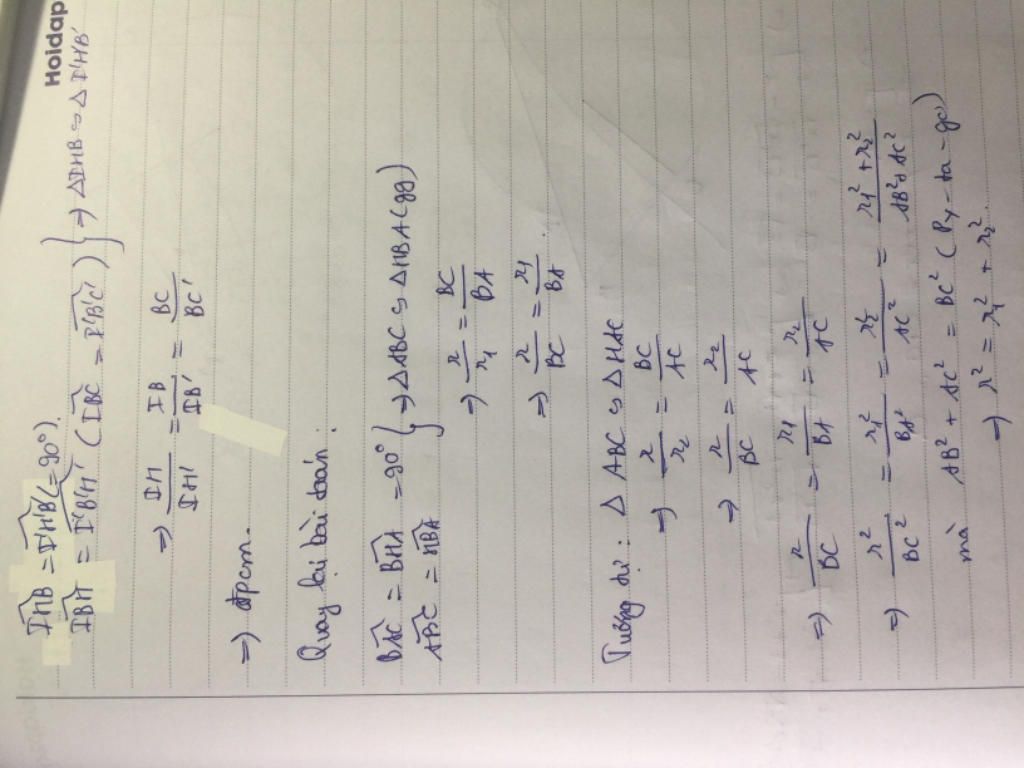 Hoidap
∠IHB = ∠I'H'B' (=90°).
∠IBH = ∠I'B'H' (∠IBC = ∠I'B'C') } ⇒ △IHB ∽ △I'H'B'
⇒ IH/IH' = IB/IB' = BC/BC'
⇒ đpcm.
Quay lại bài toán:
∠BAC = ∠BHA = 90°
∠ABC = ∠HBA } ⇒ △ABC ∽ △HBA (gg)
⇒ r/r₁ = BC/BA
⇒ r/BC = r₁/BA
Tương tự: △ABC ∽ △HAC
⇒ r/r₂ = BC/AC
⇒ r/BC = r₂/AC
⇒ r/BC = r₁/BA = r₂/AC
⇒ r²/BC² = r₁²/BA² = r₂²/AC² = (r₁² + r₂²)/(AB² + AC²)
mà AB² + AC² = BC² (Py-ta-go)
⇒ r² = r₁² + r₂².